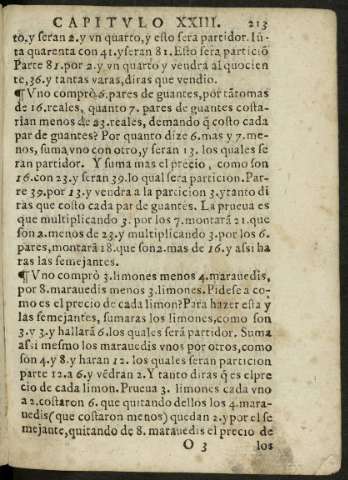 CAPITVLO XXIII. 213
to, y seran 2. y vn quarto, y esto sera partidor. Iũ-
ta quarenta con 41. y seran 81. Esto sera particiõ
Parte 81. por 2. y vn quarto y vendrà al quocien
te, 36. y tantas varas, diras que vendio.
¶ Vno comprò 6. pares de guantes, por tãto mas
de 16. reales, quanto 7. pares de guantes costa-
rian menos de 23. reales, demando q̃ costo cada
par de guantes? Por quanto dize 6. mas y 7. me-
nos, suma, vno con otro, y seran 13. los quales se
ran partidor. Y suma mas el precio, como son
16. con 23. y seran 39. lo qual sera particion. Par-
re 39. por 13. y vendra a la particion 3. y tanto di
ras que costo cada par de guantes. La prueua es
que multiplicando 3. por los 7. montarà 21. que
son 2. menos de 23. y multiplicando 3. por los 6.
pares, montarà 18. que son 2. mas de 16. y assi ha
ras las semejantes.
¶ Vno comprò 3. limones menos 4. marauedis,
por 8. marauedis menos 3. limones. Pidese a co-
mo es el precio de cada limon? Para hazer esta y
las semejantes, sumaras los limones, como son
3. y 3. y hallarà 6. los quales serà partidor. Suma
assi mesmo los marauedis vnos por otros, como
son 4. y 8. y haran 12. los quales seran particion
parte 12. a 6. y vẽdran 2. Y tanto diras q̃ es el pre
cio de cada limon. Prueua 3. limones cada vno
a 2. costaron 6. que quitando dellos los 4. mara-
uedis (que costaron menos) quedan 2. y por el se
mejante, quitando de 8. marauedis el precio de
O 3 los